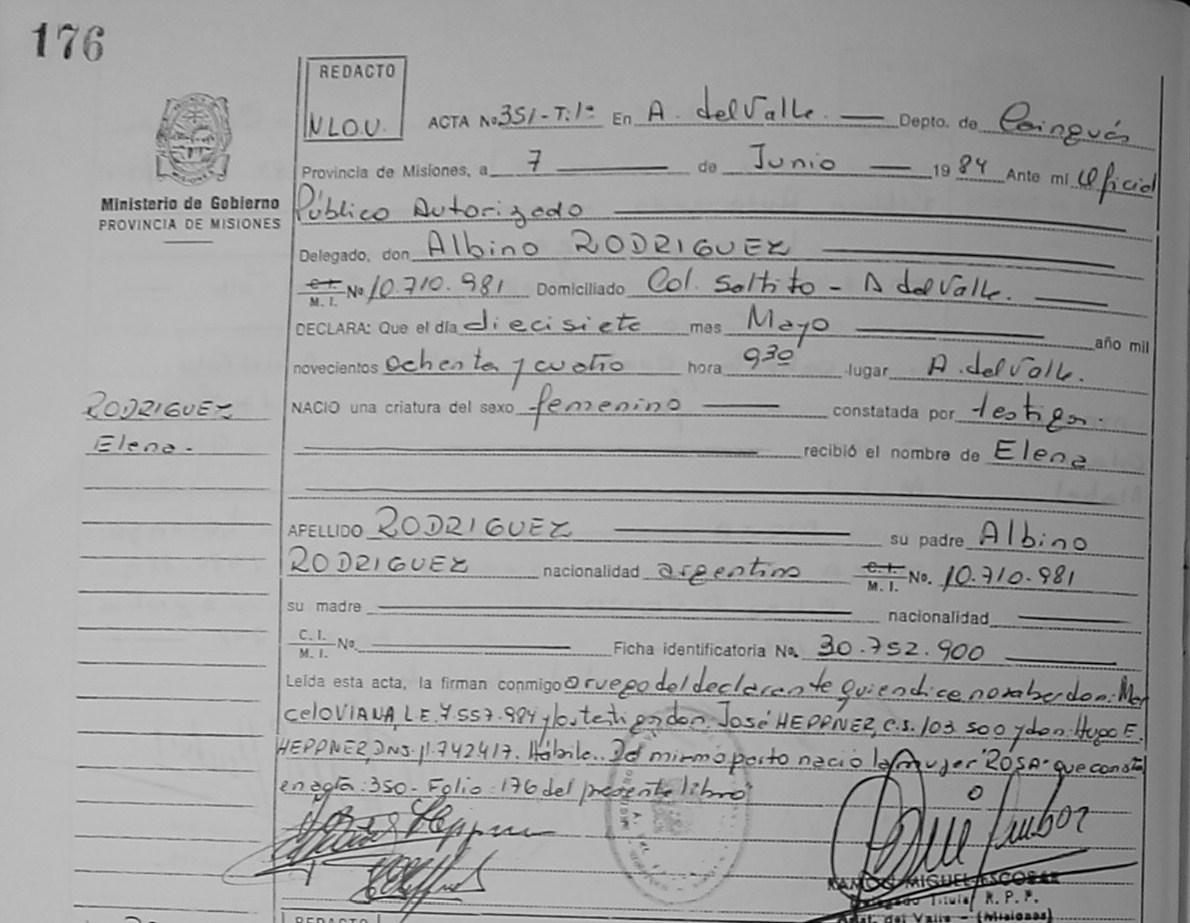 176
REDACTO
N.L.O.U.
ACTA No 351-T:1º En A. del Valle. Depto. de Cainguás
Provincia de Misiones, a 7 de Junio 1984 Ante mi Oficial
Ministerio de Gobierno
PROVINCIA DE MISIONES
Público Autorizado
Delegado, don Albino RODRIGUEZ
C.I.
M. I. No 10.710.981 Domiciliado Col. Saltito - A del Valle.
DECLARA: Que el día diecisiete mes Mayo año mil
novecientos ochenta y cuatro hora 930 lugar A. del Valle.
RODRIGUEZ
Elena.-
NACIO una criatura del sexo femenino constatada por testigos.
recibió el nombre de Elena
APELLIDO RODRIGUEZ su padre Albino
RODRIGUEZ nacionalidad argentino C.I. M. I. No. 10.710.981
su madre nacionalidad
C. I.
M. I. No. Ficha identificatoria No. 30.752.900
Leída esta acta, la firman conmigo a ruego del declarante quien dice no saber don: Mar
celo VIANA, L.E. 7.557.984 y los testigos don: José HEPPNER, C.S. 103.500 y don: Hugo E.
HEPPNER, DNI. 11.742.417. Hábiles. Del mismo parto nació la mujer "ROSA" que consta
en acta: 350 - Folio: 176 del presente libro
RAMON MIGUEL ESCOBAR
Delegado Titular R. P. P.
del Valle - (Misiones)
REDACTO